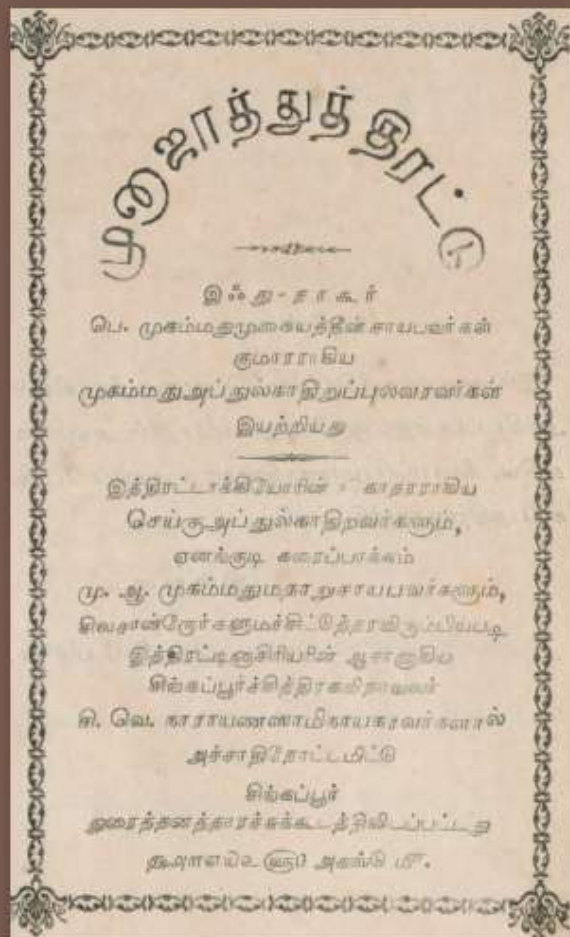 முனாஜாத்துத்திரட்டு
இஃது - நாகூர்
பெ. முகம்மதுமுகையத்தீன்சாயபவர்கள்
குமாரராகிய
முகம்மதுஅப்துல்காதிறுப்புலவரவர்கள்
இயற்றியது
இத்திரட்டாக்கியோரின் காதரராகிய
செய்குஅப்துல்காதிறவர்களும்,
ஏனங்குடி கரைப்பாக்கம்
மு. ஆ. முகம்மதுமதாறுசாயபவர்களும்,
சிலசான்றோர்களுமச்சிட்டுத்தரவிரும்பியபடி
இத்திரட்டினாசிரியரின் ஆசானாகிய
சிங்கப்பூர்ச்சித்திரகவிநாவலர்
சி. வெ. நாராயணஸாமிநாயகரவர்களால்
அச்சாதிநோட்டமிட்டு
சிங்கப்பூர்
அச்சுக்கூடத்திலிடப்பட்டது